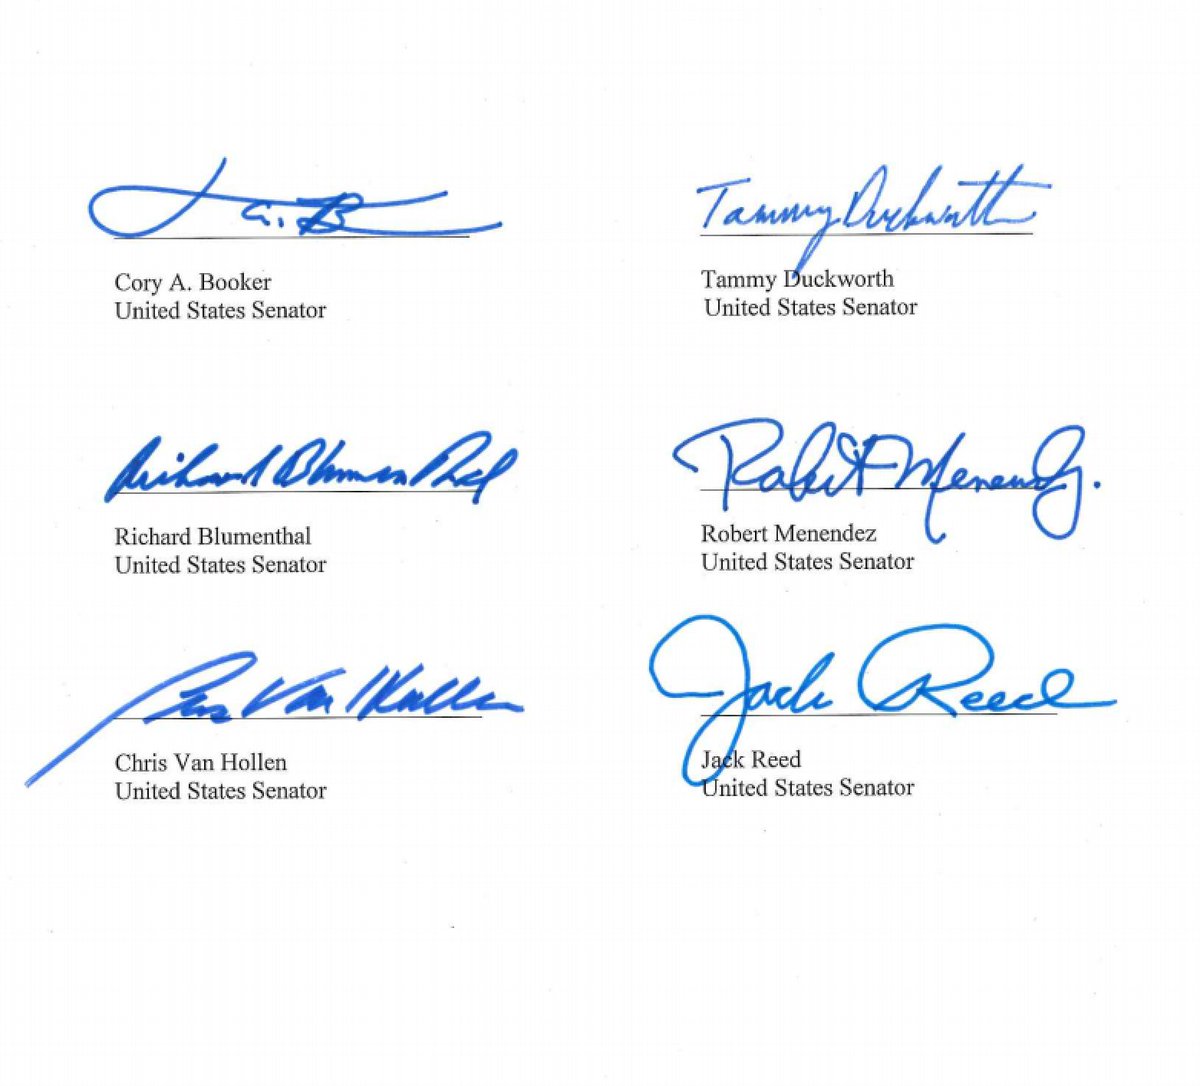 Tammy Duckworth
Cory A. Booker
United States Senator
Tammy Duckworth
United States Senator
Richard Blumenthal
Robert Menendez
Richard Blumenthal
United States Senator
Robert Menendez
United States Senator
Chris Van Hollen
Jack Reed
Chris Van Hollen
United States Senator
Jack Reed
United States Senator